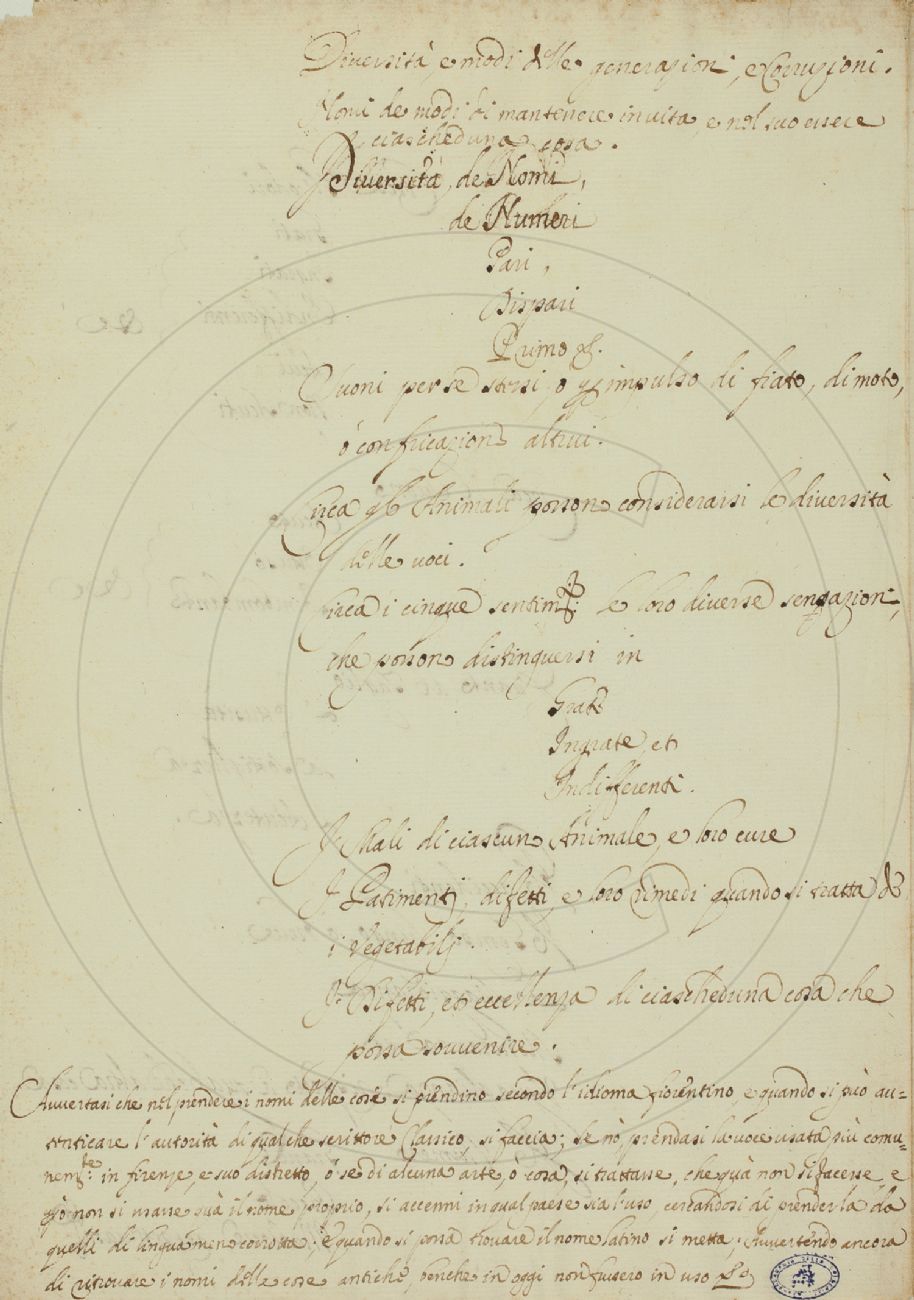 Diversità, e modi delle generazioni, e Corruzioni.
Nomi de modi di mantenere in vita, e nel suo essere
ciascheduna cosa.
Diversità, de Nomi,
de Numeri
Pari,
Dispari
Primo &.
Suoni per se stessi, o p impulso di fiato, di moto,
ò confricazione altrui.
Circa gli Animali posson considerarsi le diversità
delle voci.
Circa i cinque sentim.ti le loro diverse sensazioni,
che posson distinguersi in
Grate
Ingrate, et
Indifferenti.
I Mali di ciascun Animale, e loro cure
I Patimenti, difetti, e loro rimedi quando si tratta de
i vegetabili.
I Difetti, et eccellenza di ciascheduna cosa che
possa sovvenire.
Avvertasi che nel prendere i nomi delle cose si prendino secondo l'idioma fiorentino, e quando si può au=
tenticare l'autorità di qualche scrittore Classico, si faccia; se nò, prendasi la voce usata più comu=
nem.te in firenze, e suo distretto, ò se di alcuna arte, ò cosa, si trattasse, che quà non si facesse, e
però non si usasse quà il nome proprio, si accenni in qual paese sia l'uso, cercandosi di prenderla da
quelli di lingua meno corrotta; e quando si possa trovare il nome latino si metta; Avvertendo ancora
di ritrovare i nomi delle cose antiche, benche in oggi non fussero in uso &c